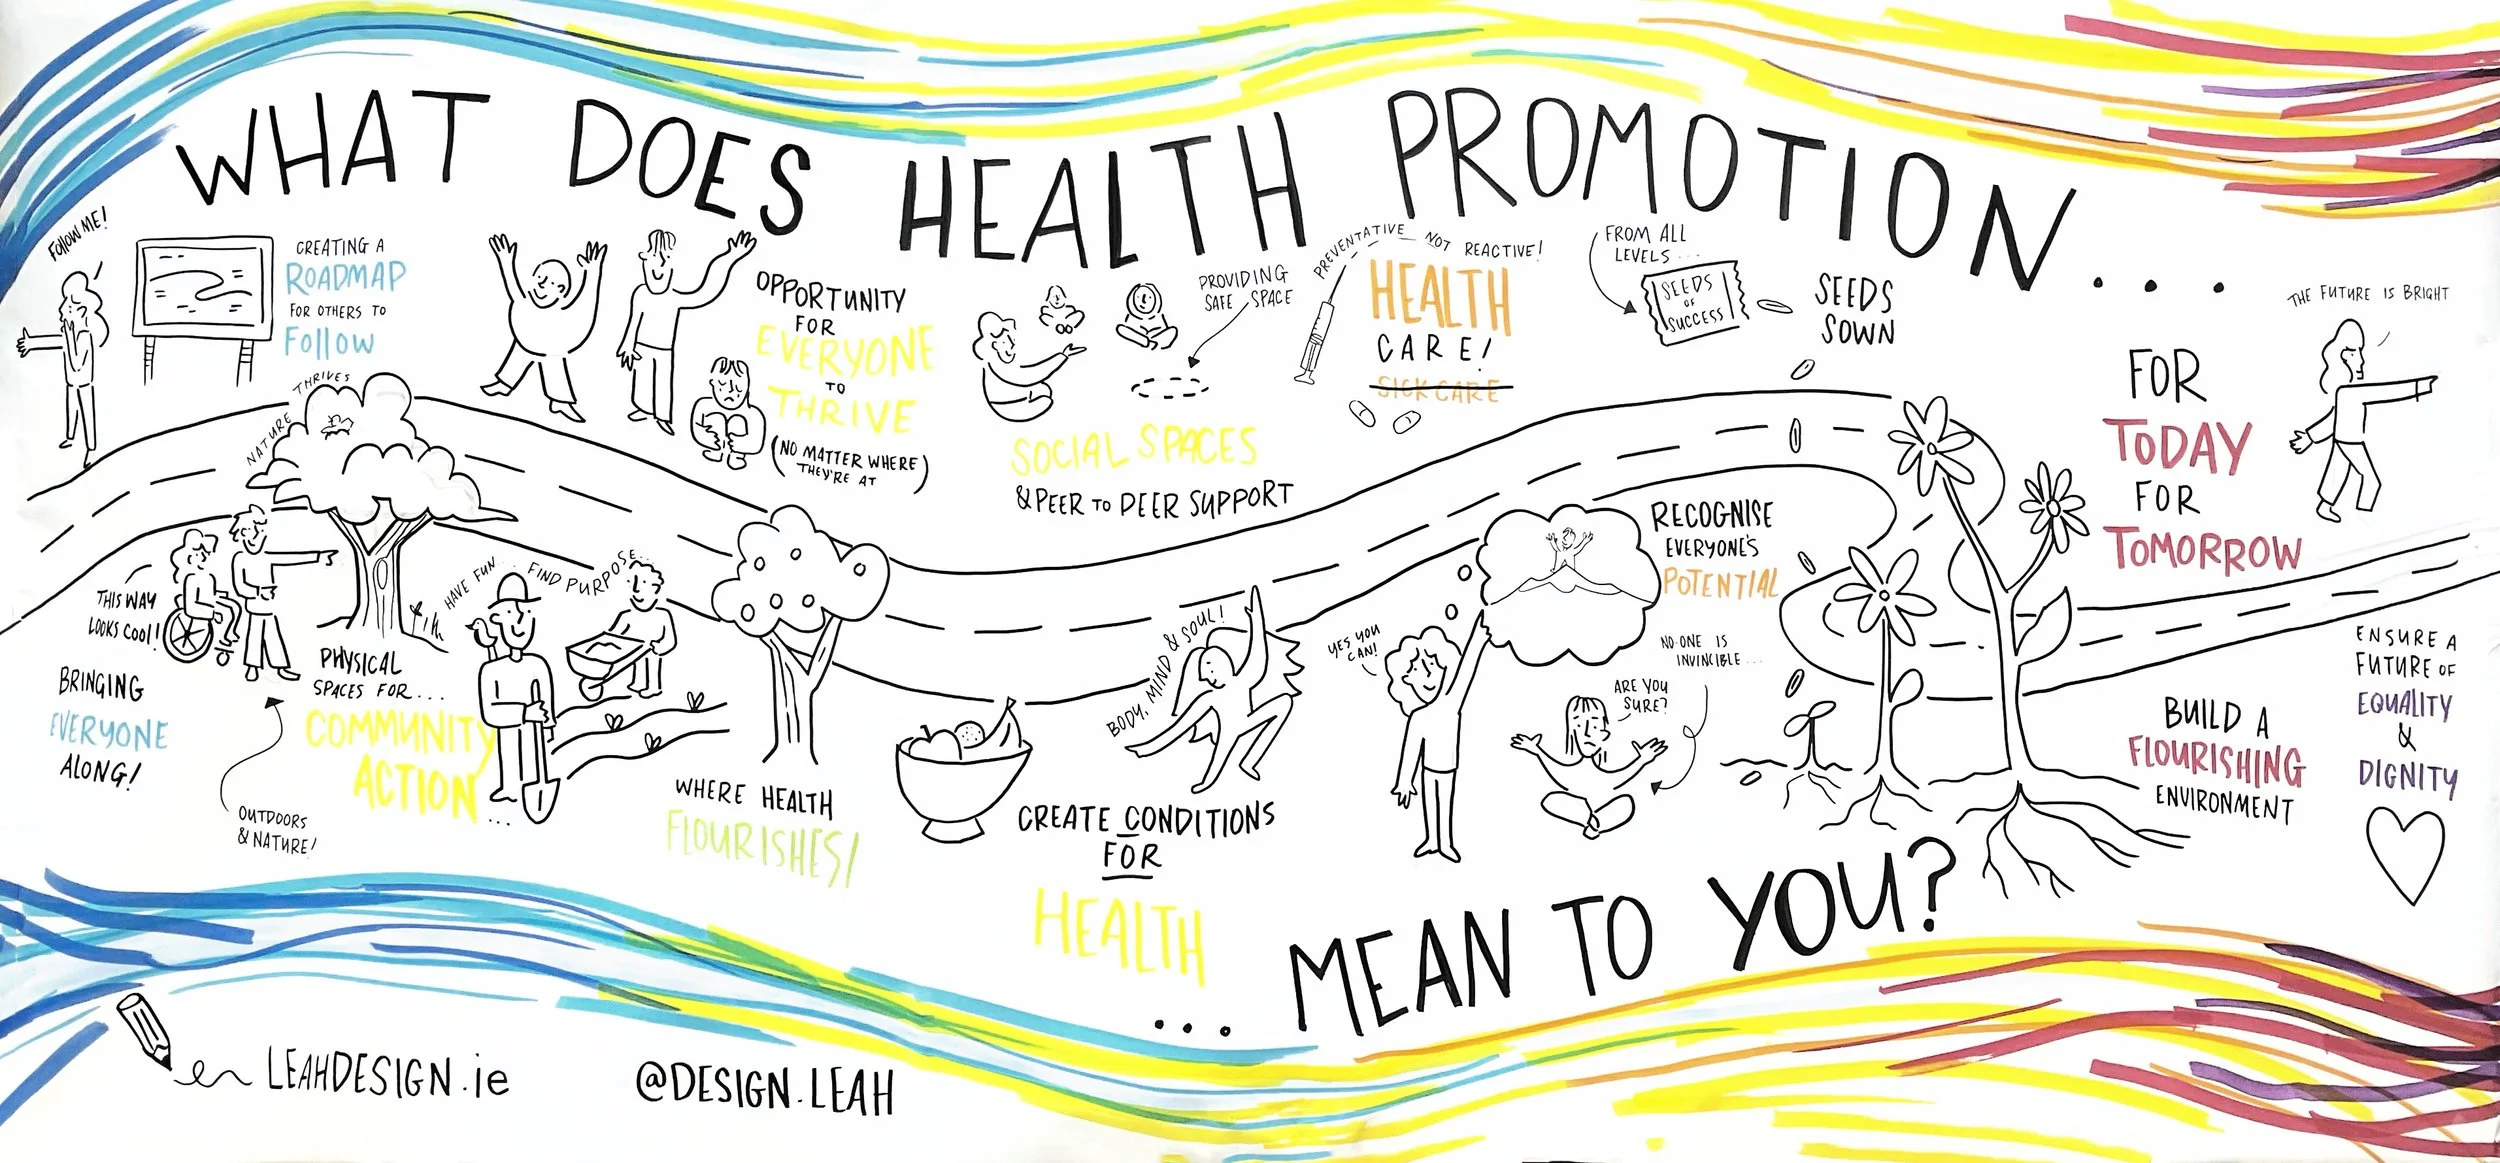 WHAT DOES HEALTH PROMOTION...
FOLLOW ME!
CREATING A
ROADMAP
FOR OTHERS TO
Follow
OPPORTUNITY
FOR
EVERYONE
TO
THRIVE
(NO MATTER WHERE
THEY'RE AT)
PROVIDING
SAFE SPACE
SOCIAL SPACES
& PEER TO PEER SUPPORT
PREVENTATIVE NOT REACTIVE!
HEALTH
CARE!
SICK CARE
FROM ALL
LEVELS...
SEEDS
OF
SUCCESS
SEEDS
SOWN
THE FUTURE IS BRIGHT
FOR
TODAY
FOR
TOMORROW
NATURE THRIVES
THIS WAY
LOOKS COOL!
BRINGING
EVERYONE
ALONG!
OUTDOORS
& NATURE!
PHYSICAL
SPACES FOR...
COMMUNITY
ACTION
...
HAVE FUN... FIND PURPOSE...
WHERE HEALTH
FLOURISHES!
BODY, MIND & SOUL!
CREATE CONDITIONS
FOR
HEALTH
YES YOU
CAN!
RECOGNISE
EVERYONE'S
POTENTIAL
NO-ONE IS
INVINCIBLE...
ARE YOU
SURE?
BUILD A
FLOURISHING
ENVIRONMENT
ENSURE A
FUTURE OF
EQUALITY
&
DIGNITY
...MEAN TO YOU?
LEAHDESIGN.ie
@DESIGN.LEAH